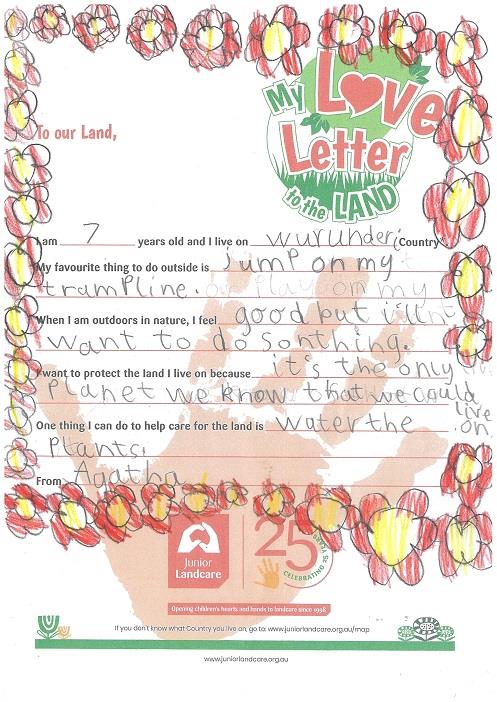 My Love
Letter
to the LAND
To our Land,
I am 7 years old and I live on wurunderi Country
My favourite thing to do outside is jump on my
trampline.
When I am outdoors in nature, I feel good but i'll
want to do sonthing.
I want to protect the land I live on because it's the only
Planet we know that we could
live
on
One thing I can do to help care for the land is water the
Plants.
From Agatha
Junior
Landcare
25
YEARS
CELEBRATING 25
Opening children's hearts and hands to landcare since 1998
If you don't know what Country you live on, go to: www.juniorlandcare.org.au/map
www.juniorlandcare.org.au